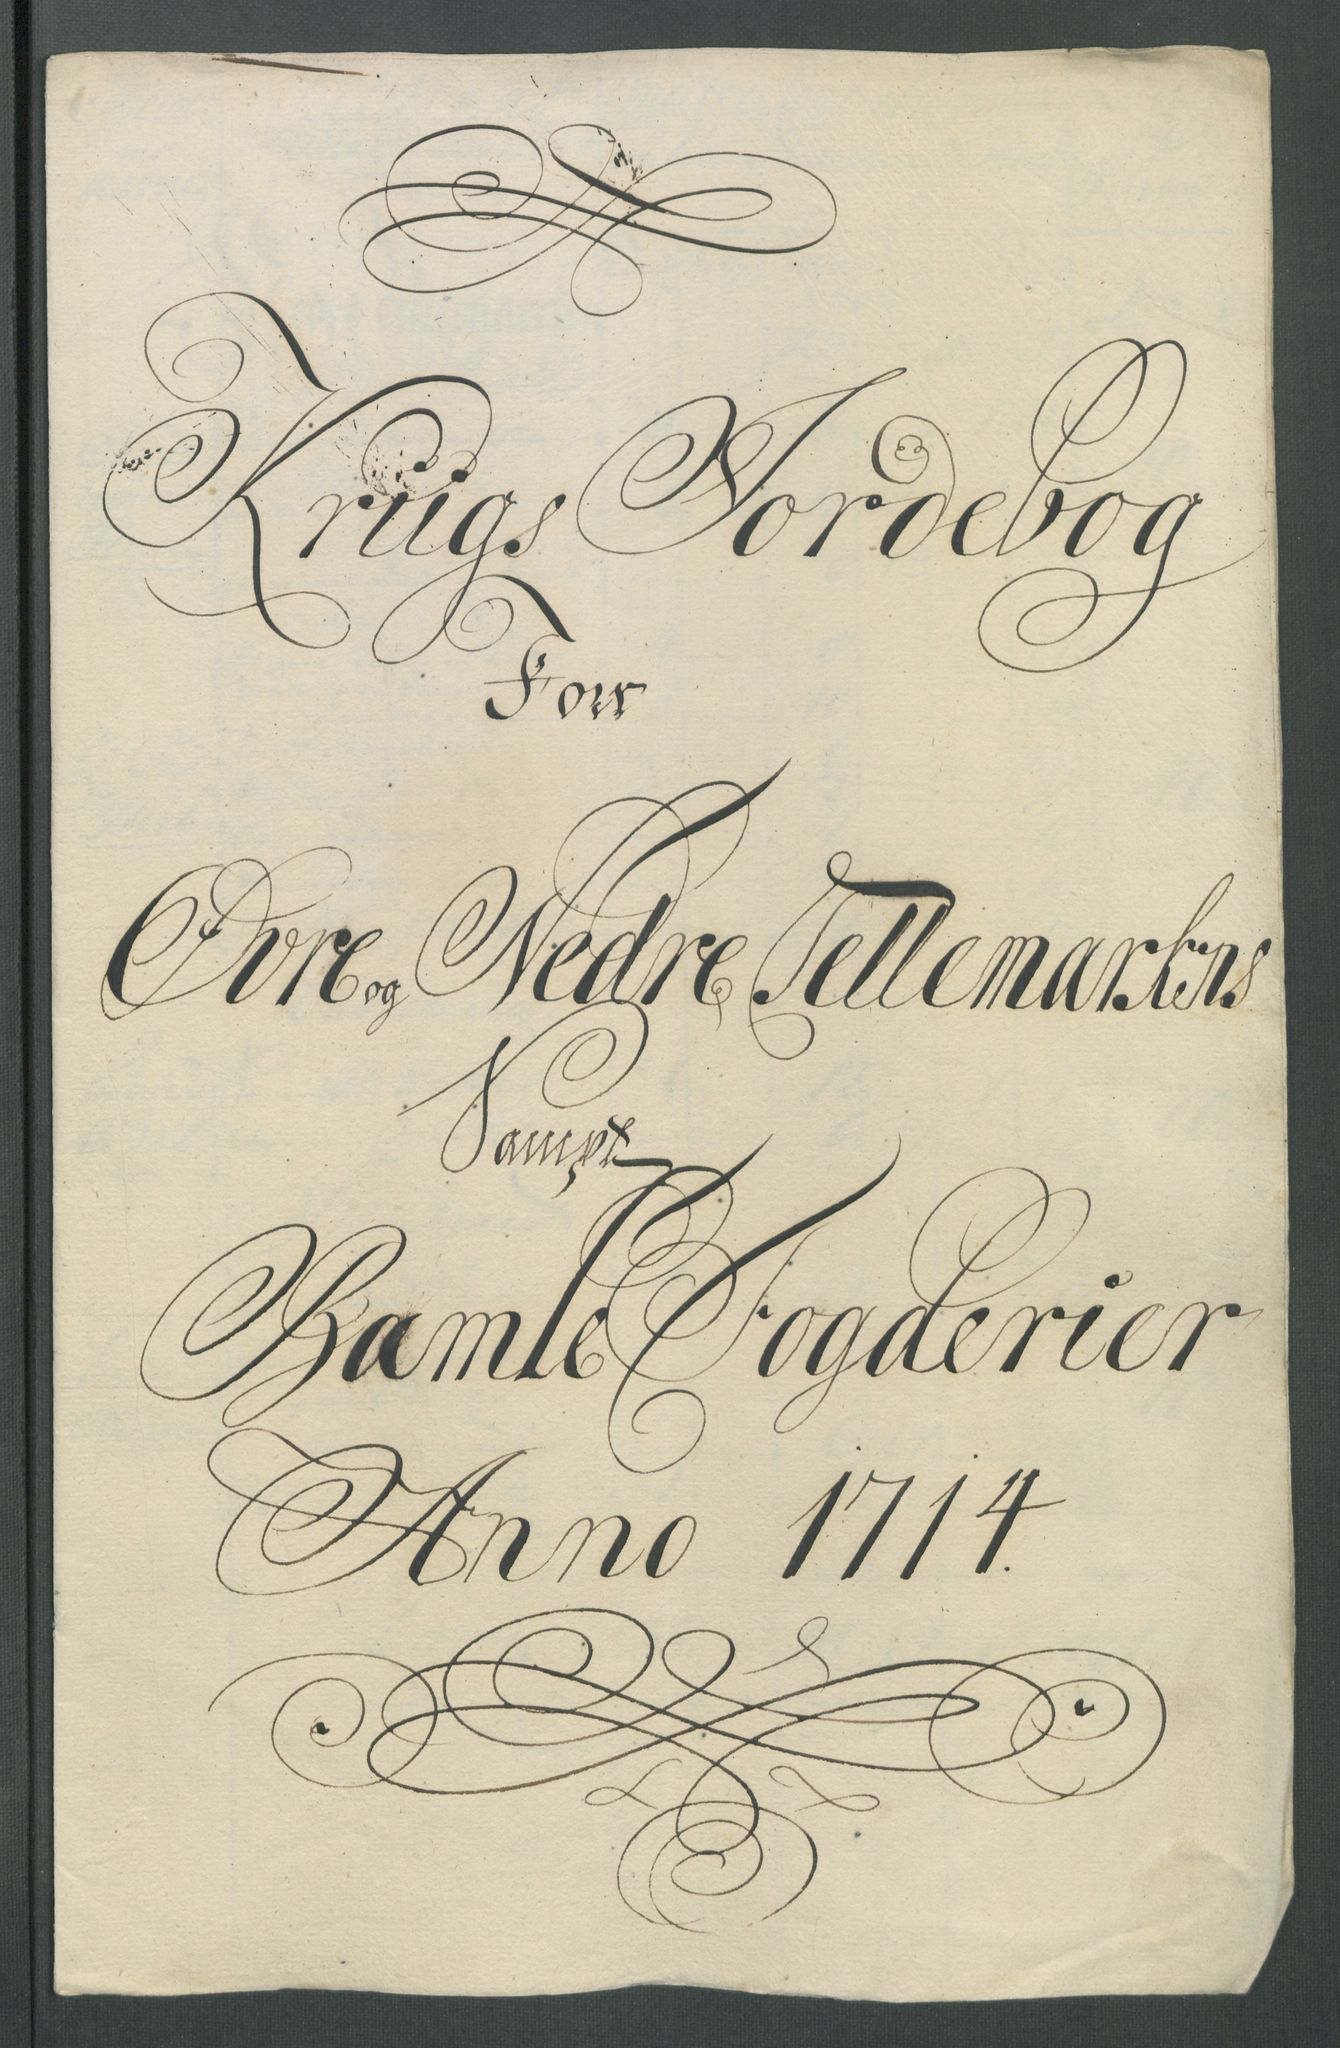 Krigs Jordebog
For
Øvre og Nedre Tellemarkens
Sampt
Bamle Fogderier
Anno 1714.